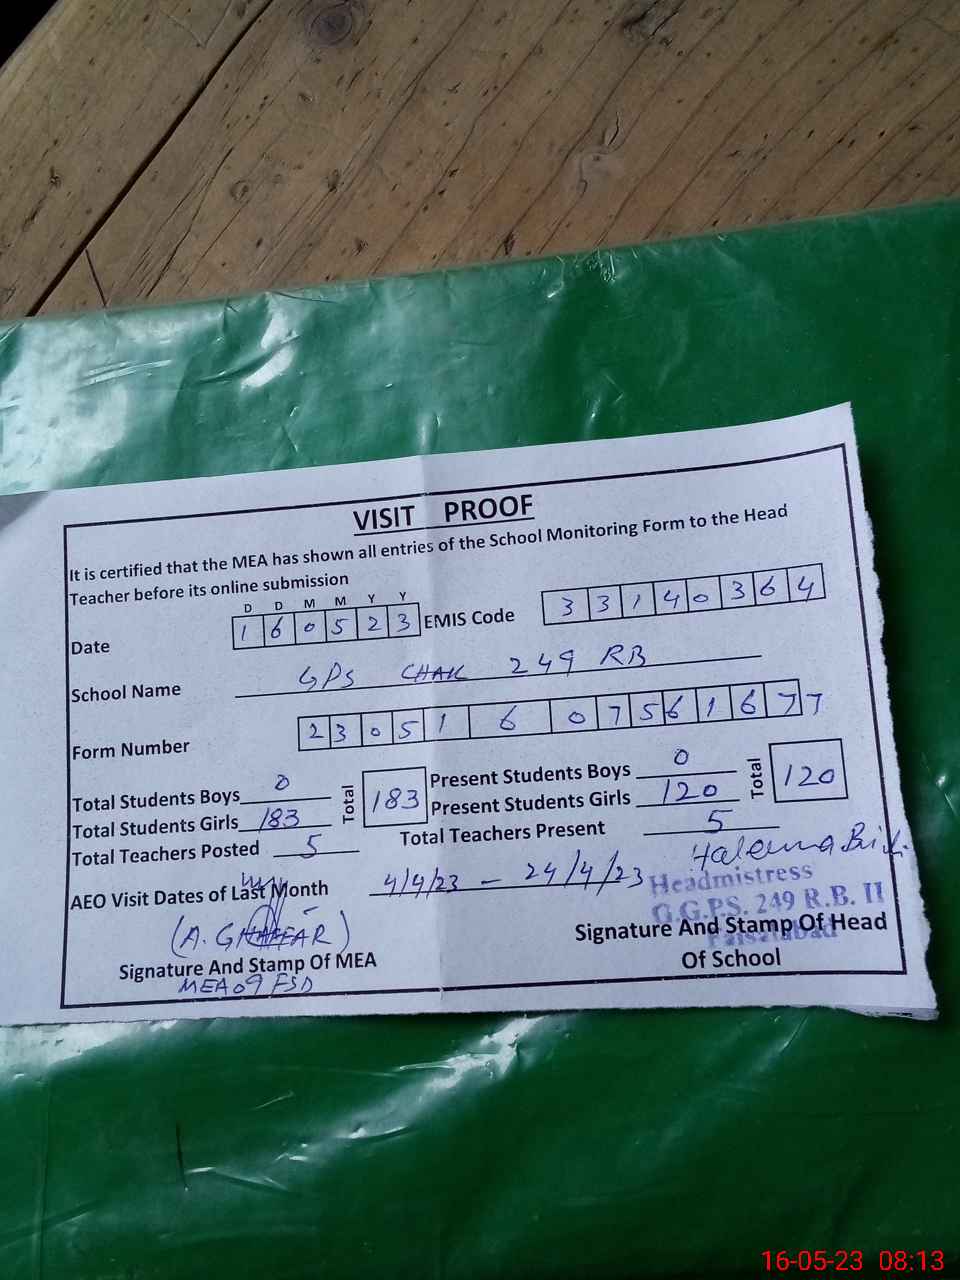 VISIT PROOF
It is certified that the MEA has shown all entries of the School Monitoring Form to the Head
Teacher before its online submission
D D M M Y Y
Date 1 6 0 5 2 3 EMIS Code 3 3 1 4 0 3 6 4
School Name GPS CHAK 249 RB
Form Number 2 3 0 5 1 6 0 7 5 6 1 6 7 7
Total Students Boys 0 Total 183 Present Students Boys 0 Total 120
Total Students Girls 183 Present Students Girls 120
Total Teachers Posted 5 Total Teachers Present 5
AEO Visit Dates of Last Month 4/4/23 - 24/4/23
Headmistress
G.G.P.S. 249 R.B. II
Faisalabad
(A. GHAFFAR)
Signature And Stamp Of MEA
MEA 09 FSD
Signature And Stamp Of Head
Of School
16-05-23 08:13